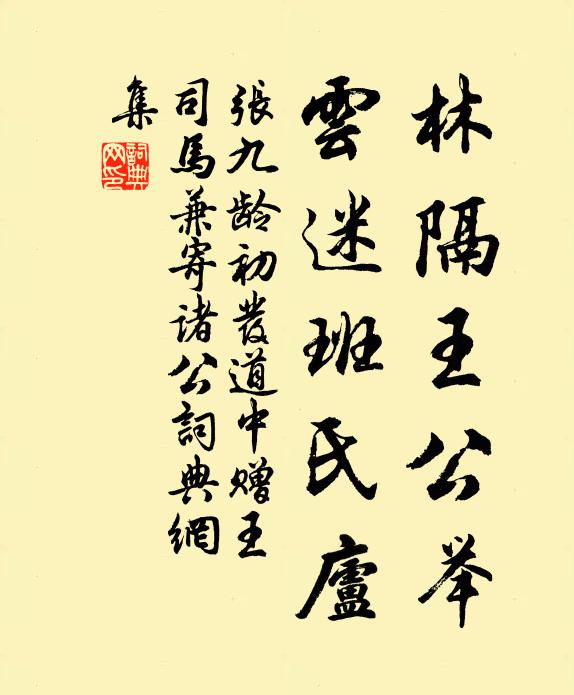 林隔王公举
雲迷班氏廬
張九龄初發道中贈王
司馬兼寄诸公詞典網
集
詞典网印